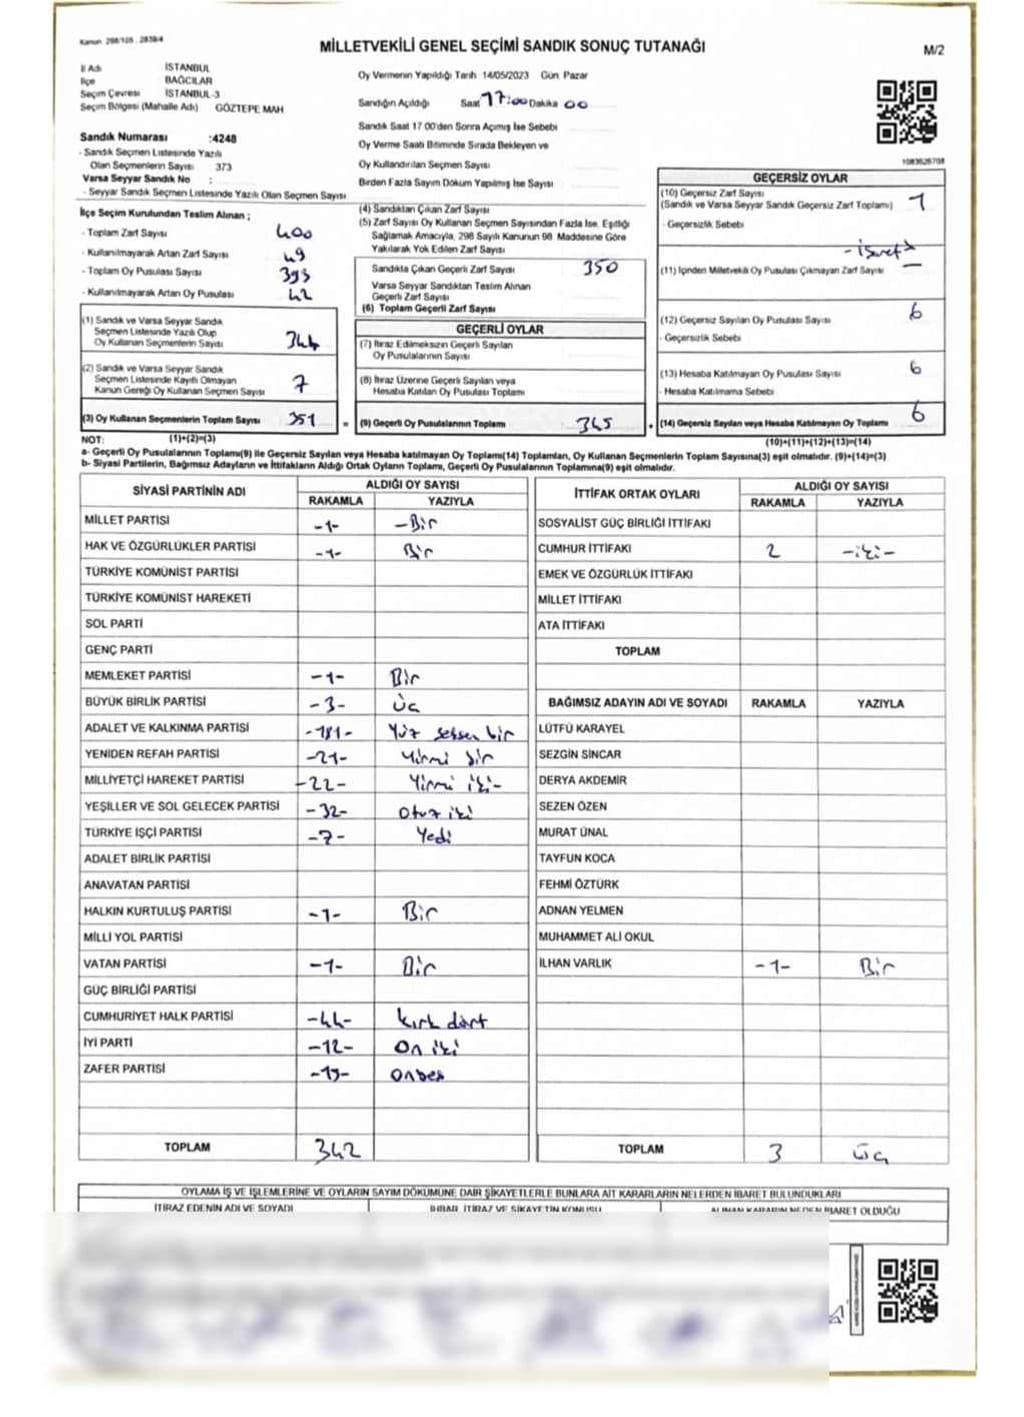 Kanun 298/105 . 2839/4
MİLLETVEKİLİ GENEL SEÇİMİ SANDIK SONUÇ TUTANAĞI
M/2
İl Adı İSTANBUL
İlçe BAĞCILAR
Seçim Çevresi İSTANBUL-3
Seçim Bölgesi (Mahalle Adı) GÖZTEPE MAH
Oy Vermenin Yapıldığı Tarih 14/05/2023 Gün Pazar
Sandığın Açıldığı Saat 17:00 Dakika 00
Sandık Saat 17 00'den Sonra Açımış İse Sebebi
Oy Verme Saati Bitiminde Sırada Bekleyen ve
Oy Kullandırılan Seçmen Sayısı
Birden Fazla Sayım Döküm Yapılmış İse Sayısı
Sandık Numarası :4248
- Sandık Seçmen Listesinde Yazılı
Olan Seçmenlerin Sayısı 373
Varsa Seyyar Sandık No :
- Seyyar Sandık Seçmen Listesinde Yazılı Olan Seçmen Sayısı
İlçe Seçim Kurulundan Teslim Alınan ;
- Toplam Zarf Sayısı 400
- Kullanılmayarak Artan Zarf Sayısı 49
- Toplam Oy Pusulası Sayısı 393
- Kullanılmayarak Artan Oy Pusulası 42
(1) Sandık ve Varsa Seyyar Sandık
Seçmen Listesinde Yazılı Olup
Oy Kullanan Seçmenlerin Sayısı 344
(2) Sandık ve Varsa Seyyar Sandık
Seçmen Listesinde Kayıtlı Olmayan
Kanun Gereği Oy Kullanan Seçmen Sayısı 7
(3) Oy Kullanan Seçmenlerin Toplam Sayısı 351 =
(4) Sandıktan Çıkan Zarf Sayısı
(5) Zarf Sayısı Oy Kullanan Seçmen Sayısından Fazla İse, Eşitliği
Sağlamak Amacıyla, 298 Sayılı Kanunun 98. Maddesine Göre
Yakılarak Yok Edilen Zarf Sayısı
Sandıkta Çıkan Geçerli Zarf Sayısı 350
Varsa Seyyar Sandıktan Teslim Alınan
Geçerli Zarf Sayısı
(6) Toplam Geçerli Zarf Sayısı
GEÇERLİ OYLAR
(7) İtiraz Edilmeksizin Geçerli Sayılan
Oy Pusulalarının Sayısı
(8) İtiraz Üzerine Geçerli Sayılan veya
Hesaba Katılan Oy Pusulası Toplamı
(9) Geçerli Oy Pusulalarının Toplamı 345 +
1083626708
GEÇERSİZ OYLAR
(10) Geçersiz Zarf Sayısı
(Sandık ve Varsa Seyyar Sandık Geçersiz Zarf Toplamı) 1
- Geçersizlik Sebebi
(11) İçinden Milletvekili Oy Pusulası Çıkmayan Zarf Sayısı —
(12) Geçersiz Sayılan Oy Pusulası Sayısı 6
- Geçersizlik Sebebi
(13) Hesaba Katılmayan Oy Pusulası Sayısı 6
- Hesaba Katılmama Sebebi
(14) Geçersiz Sayılan veya Hesaba Katılmayan Oy Toplamı 6
NOT: (1)+(2)=(3) (10)+(11)+(12)+(13)=(14)
a- Geçerli Oy Pusulasının Toplamı(9) ile Geçersiz Sayılan veya Hesaba katılmayan Oy Toplamı(14) Toplamları, Oy Kullanan Seçmenlerin Toplam Sayısına(3) eşit olmalıdır. (9)+(14)=(3)
b- Siyasi Partilerin, Bağımsız Adayların ve İttifakların Aldığı Ortak Oyların Toplamı, Geçerli Oy Pusulalarının Toplamına(9) eşit olmalıdır.
SİYASİ PARTİNİN ADI ALDIĞI OY SAYISI
RAKAMLA YAZIYLA
MİLLET PARTİSİ -1- -Bir
HAK VE ÖZGÜRLÜKLER PARTİSİ -1- Bir
TÜRKİYE KOMÜNİST PARTİSİ
TÜRKİYE KOMÜNİST HAREKETİ
SOL PARTİ
GENÇ PARTİ
MEMLEKET PARTİSİ -1- Bir
BÜYÜK BİRLİK PARTİSİ -3- Üç
ADALET VE KALKINMA PARTİSİ -181- Yüz seksen bir
YENİDEN REFAH PARTİSİ -21- Yirmi bir
MİLLİYETÇİ HAREKET PARTİSİ -22- Yirmi iki-
YEŞİLLER VE SOL GELECEK PARTİSİ -32- Otuz iki
TÜRKİYE İŞÇİ PARTİSİ -7- Yedi
ADALET BİRLİK PARTİSİ
ANAVATAN PARTİSİ
HALKIN KURTULUŞ PARTİSİ -1- Bir
MİLLİ YOL PARTİSİ
VATAN PARTİSİ -1- Bir
GÜÇ BİRLİĞİ PARTİSİ
CUMHURİYET HALK PARTİSİ -44- kırk dört
İYİ PARTİ -12- On iki
ZAFER PARTİSİ -15- Onbeş
TOPLAM 342
İTTİFAK ORTAK OYLARI ALDIĞI OY SAYISI
RAKAMLA YAZIYLA
SOSYALİST GÜÇ BİRLİĞİ İTTİFAKI
CUMHUR İTTİFAKI 2 -iki-
EMEK VE ÖZGÜRLÜK İTTİFAKI
MİLLET İTTİFAKI
ATA İTTİFAKI
TOPLAM
BAĞIMSIZ ADAYIN ADI VE SOYADI RAKAMLA YAZIYLA
LÜTFÜ KARAYEL
SEZGİN SİNCAR
DERYA AKDEMİR
SEZEN ÖZEN
MURAT ÜNAL
TAYFUN KOCA
FEHMİ ÖZTÜRK
ADNAN YELMEN
MUHAMMET ALİ OKUL
İLHAN VARLIK -1- Bir
TOPLAM 3 üç
OYLAMA İŞ VE İŞLEMLERİNE VE OYLARIN SAYIM DÖKÜMÜNE DAİR ŞİKAYETLERLE BUNLARA AİT KARARLARIN NELERDEN İBARET BULUNDUKLARI
İTİRAZ EDENİN ADI VE SOYADI İHBAR, İTİRAZ VE ŞİKAYETİN KONUSU ALINAN KARARIN NEDEN İBARET OLDUĞU